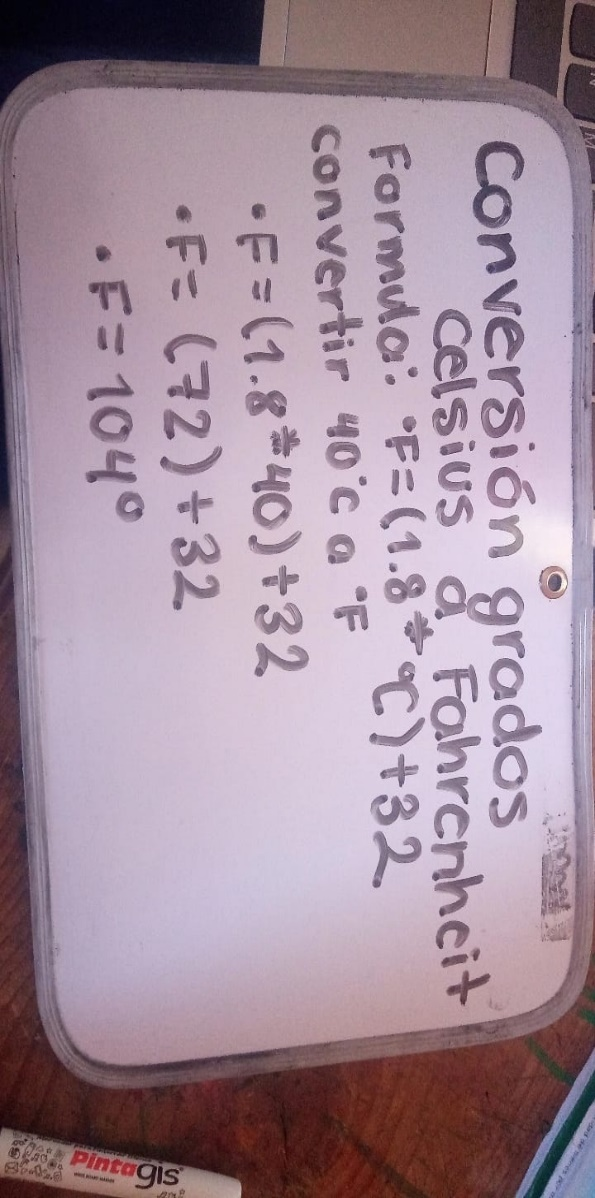 Conversión grados
Celsius a Fahrenheit
Formula: °F=(1.8*°C)+32
convertir 40°C a °F
•F=(1.8*40)+32
•F=(72)+32
•F=104°
Pintagis
N
M